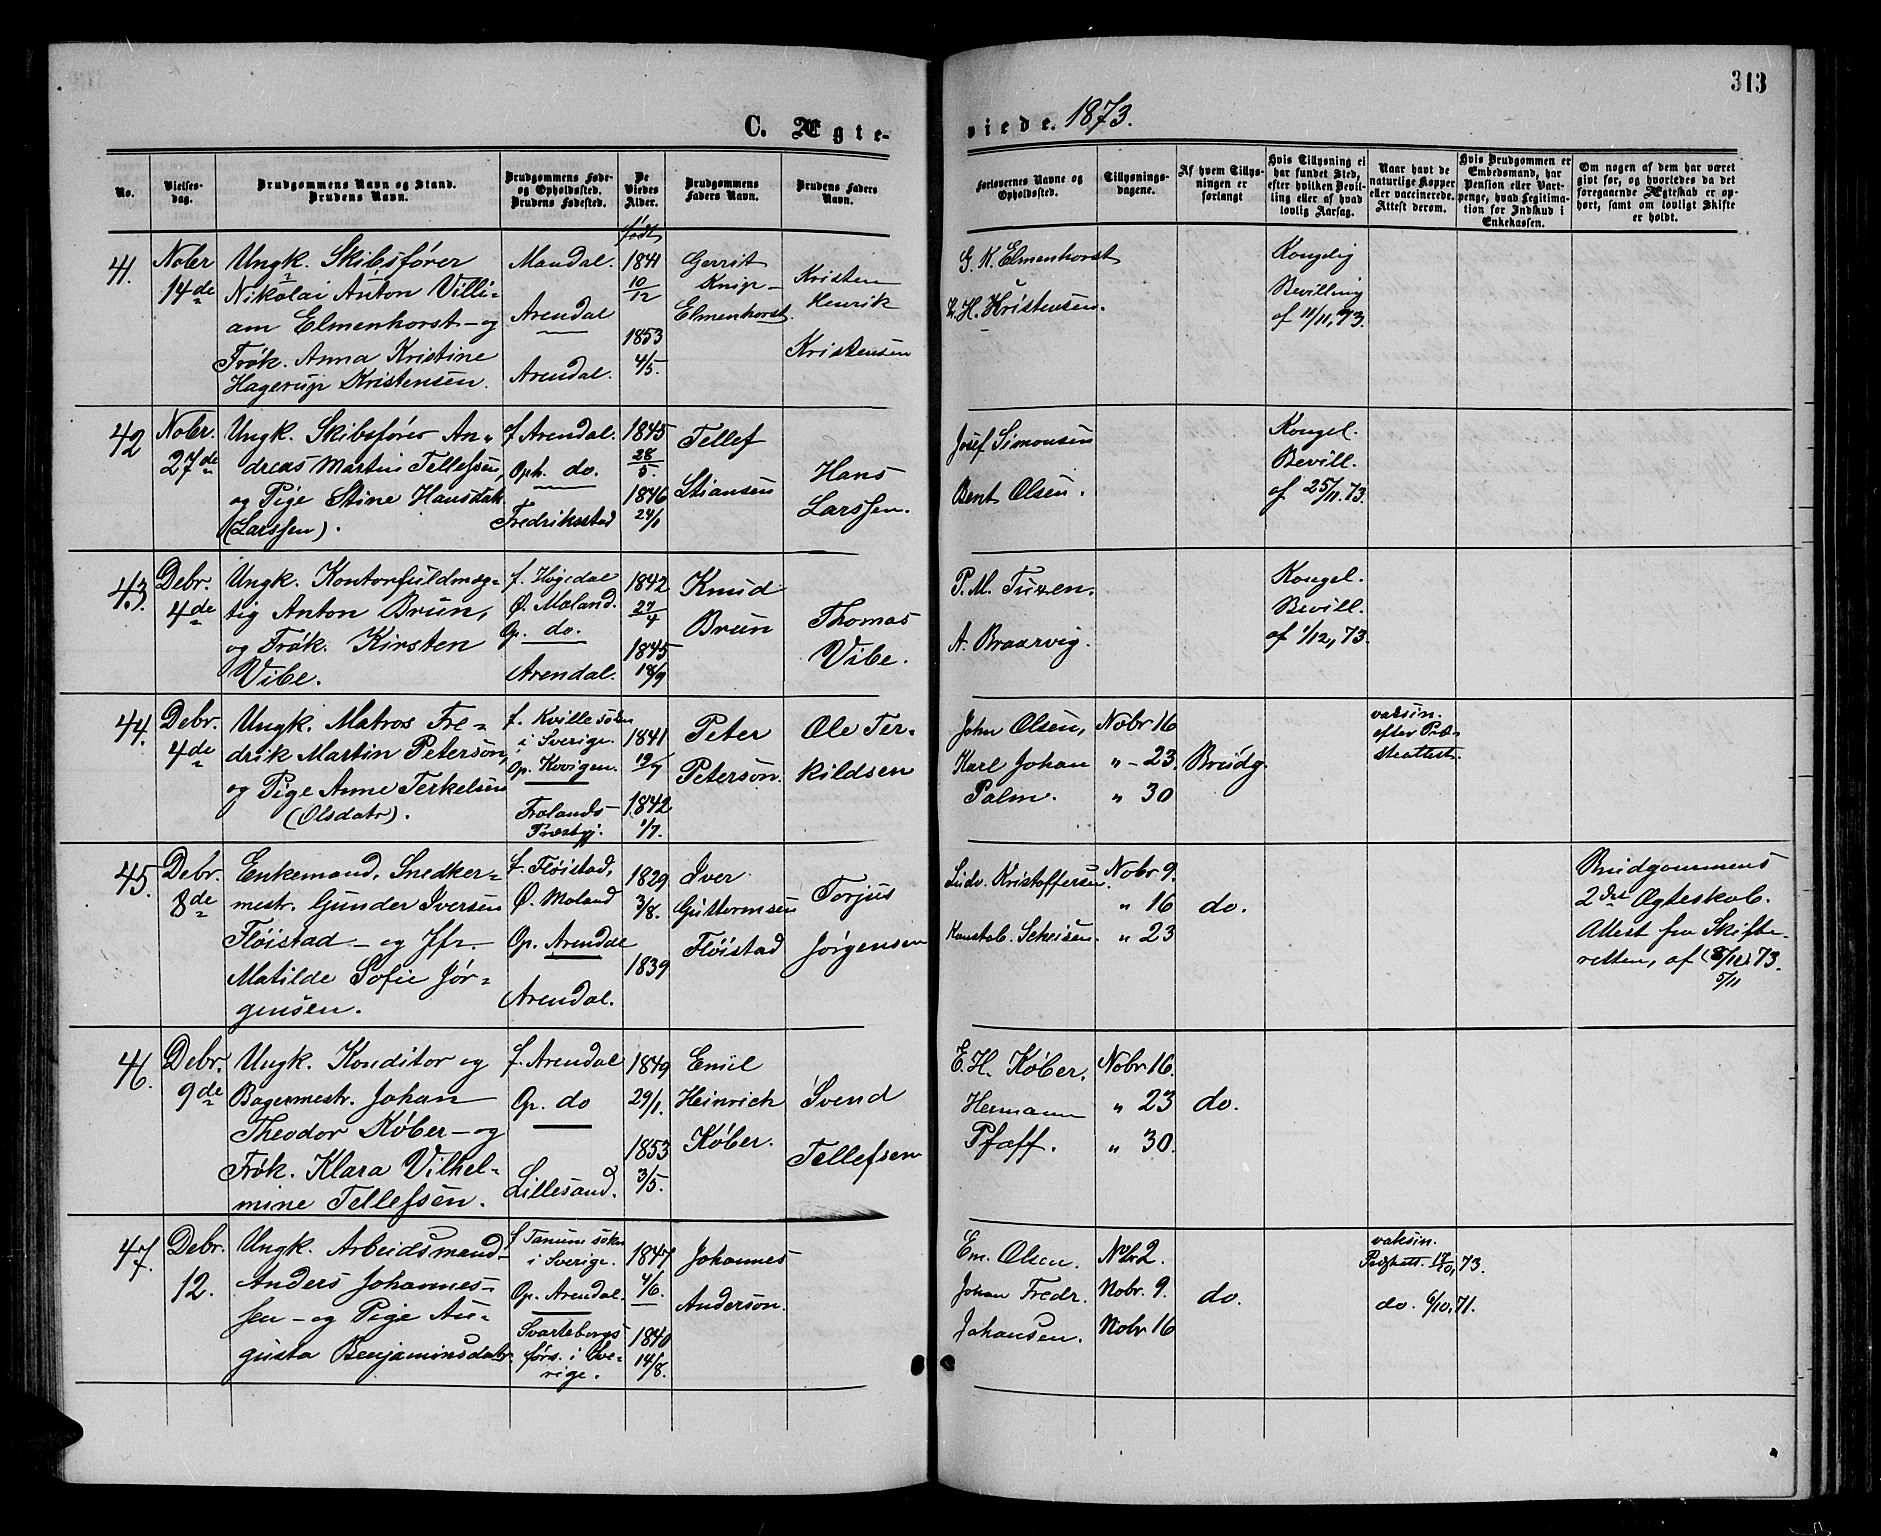 313
C. Ægte-
viede. 1873.
No.
Vielses-
dag.
Brudgommens Navn og Stand.
Brudens Navn.
Brudgommens Føde-
og Opholdssted.
Brudens Fødested.
De
Viedes
Alder.
Brudgommens
Faders Navn.
Brudens Faders
Navn.
Forlovernes Navne og
Opholdssted.
Tillysnings-
dagene.
Af hvem Tillys-
ningen er
forlangt
Hvis Tillysning ei
har fundet Sted,
efter hvilken Bevil-
ling eller af hvad
lovlig Aarsag.
Naar havt de
naturlige Kopper
eller vaccinerede.
Attest derom.
Hvis Brudgommen er
Embedsmand, har
Pension eller Vart-
penge, hvad Legitima-
tion for Indskud i
Enkekassen.
Om nogen af dem har været
gift før, og hvorledes da det
foregaaende Ægteskab er op-
hørt, samt om lovligt Skifte
er holdt.
født
41.
Nobr
14de
Ungk. Skibsfører
Nikolai Anton Villi-
am Elmenhorst - og
Frøk. Anna Kristine
Hagerup Kristensen.
Mandal.
Arendal
Arendal.
1841
10/12
1853
4/5.
Gerrit
Knip-
Elmenhorst.
Kristen
Henrik
Kristensen
G. K. Elmenhorst
K. H. Kristensen.
Konglig
Bevilling
af 11/11, 73.
42
Nobr.
27de
Ungk. Skibsfører An-
dreas Martin Tellefsen,
og Pige Stine Hansdatr
(Larssen).
f Arendal.
Oph. do.
Fredriksstad
1845
28/5.
1846
24/1
Tellef
Stiansen
Hans
Larssen.
Josef Simonsen
Bent Olsen.
Kongel.
Bevill.
af 25/11. 73.
43.
Debr.
4de
Ungk. Kontorfuldmæg-
tig Anton Brun,
og Frøk. Kirsten
Vibe.
f. Høgedal
Ø. Moland.
Op. do.
Arendal.
1842
27/4
1845
18/9
Knud
Brun
Thomas
Vibe.
P. M. Tuxen.
A. Braarvig.
Kongel.
Bevill.
af 1/12, 73.
44.
Debr.
4de
Ungk. Matros Fre-
drik Martin Peterson,
og Pige Anne Terkelsen
(Olsdatr).
f. Kville søkn
i Sverige.
Op. Kovigen.
Frolands-
Præstgj.
1841
19/7
1842
1/7.
Peter
Peterson.
Ole Ter-
kildsen
John Olsen,
Karl Johan
Palm.
Nobr 16
" - 23.
" 30
Brudg.
vaksin.
efter Præ-
steattest.
45.
Debr.
8de
Enkemand, Snedker-
mestr. Gunder Iversen
Fløistad - og Jfr.
Matilde Sofie Jør-
gensen.
f. Fløistad,
Ø. Moland
Op. Arendal
Arendal.
1829
3/8.
1839
Iver
Guttormsen
Fløistad
Torjus
Jørgensen
Ludv. Kristoffersen.
Konstab. Scheisen.
Nobr 9.
" 16
" 23
do.
Brudgommens
2det Ægteskab.
Attest fra Skifte-
retten, af (8/12) 73.
5/11
46.
Debr.
9de
Ungk. Konditor og
Bagermestr. Johan
Theodor Køber - og
Frøk. Klara Vilhel-
mine Tellefsen.
f. Arendal
Op. do
Lillesand.
1849
29/1.
1853
3/5.
Emil
Heinrich
Køber.
Svend
Tellefsen
E. H. Køber.
Hermann
Pfaff.
Nobr 16.
" 23
" 30.
do.
47.
Debr.
12.
Ungk. Arbeidsmand
Anders Johannes-
sen - og Pige Au-
gusta Benjaminsdatr.
f Tanum søkn
i Sverige.
Op. Arendal.
Svarteborgs
førs. i Sve-
rige.
1847
4/6.
1840
14/8.
Johannes
Anderson.
Em. Olsen.
Johan Fredr.
Johansen.
Nobr 2.
Nobr. 9.
Nobr 16
do.
vaksin.
Præstatt. 17/10, 73.
do. 6/10, 71.